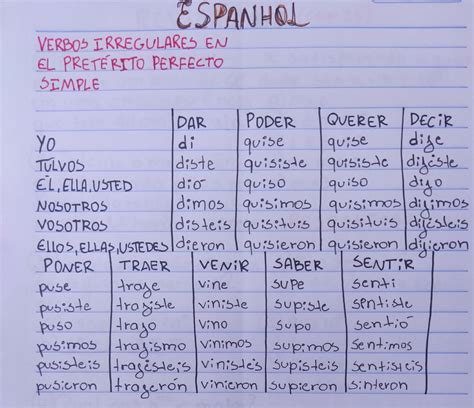 ESPANHOL
VERBOS IRREGULARES EN
EL PRETÉRITO PERFECTO
SIMPLE
DAR PODER QUERER DECIR
YO di quise quise dije
TÚ/VOS diste quisiste quisiste dijéste
ÉL, ELLA, USTED dió quiso quiso dijo
NOSOTROS dimos quisimos quisimos dijimos
VOSOTROS disteis quisituis quisituis dijésteis
ELLOS, ELLAS, USTEDES dieron quisieron quisieron dijieron
PONER TRAER VENIR SABER SENTIR
puse traje vine supe senti
pusiste trajiste viniste supiste sentiste
puso trajo vino supo sentió
pusimos trajismo vinimos supimos sentimos
pusisteis trajésteis vinistéis supisteis sentisteis
pusieron trajerón vinieron supieron sinteron